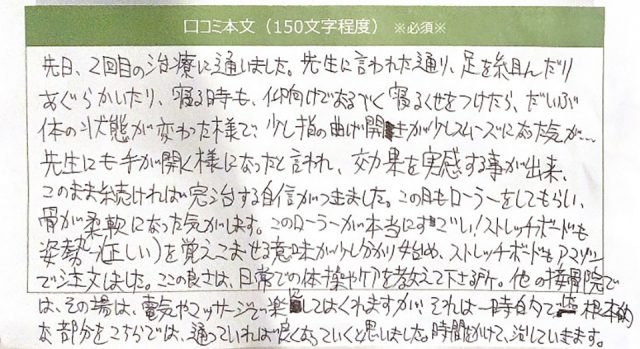 口コミ本文（150文字程度）※必須※
先日、2回目の治療に通いました。先生に言われた通り、足を組んだり
あぐらかいたり、寝る時も、仰向けでなるべく寝るくせをつけたら、だいぶ
体の状態が変わった様で、少し指の曲げ開きが少しスムーズになった気が…
先生にも手が開く様になったと言われ、効果を実感する事が出来、
このまま続ければ完治する自信がつきました。この日もローラーをしてもらい、
骨が柔軟になった気がします。このローラーが本当にすごい！ストレッチボードも
姿勢（正しい）を覚えこませる意味が少し分かり始め、ストレッチボードもアマゾン
で注文しました。ここの良さは、日常での体操やケアを教えて下さる所。他の接骨院で
は、その場は、電気やマッサージで楽にしてはくれますが、それは一時的で 根本的
な部分をこちらでは、通っていれば良くなっていくと思いました。時間をかけて、治していきます。